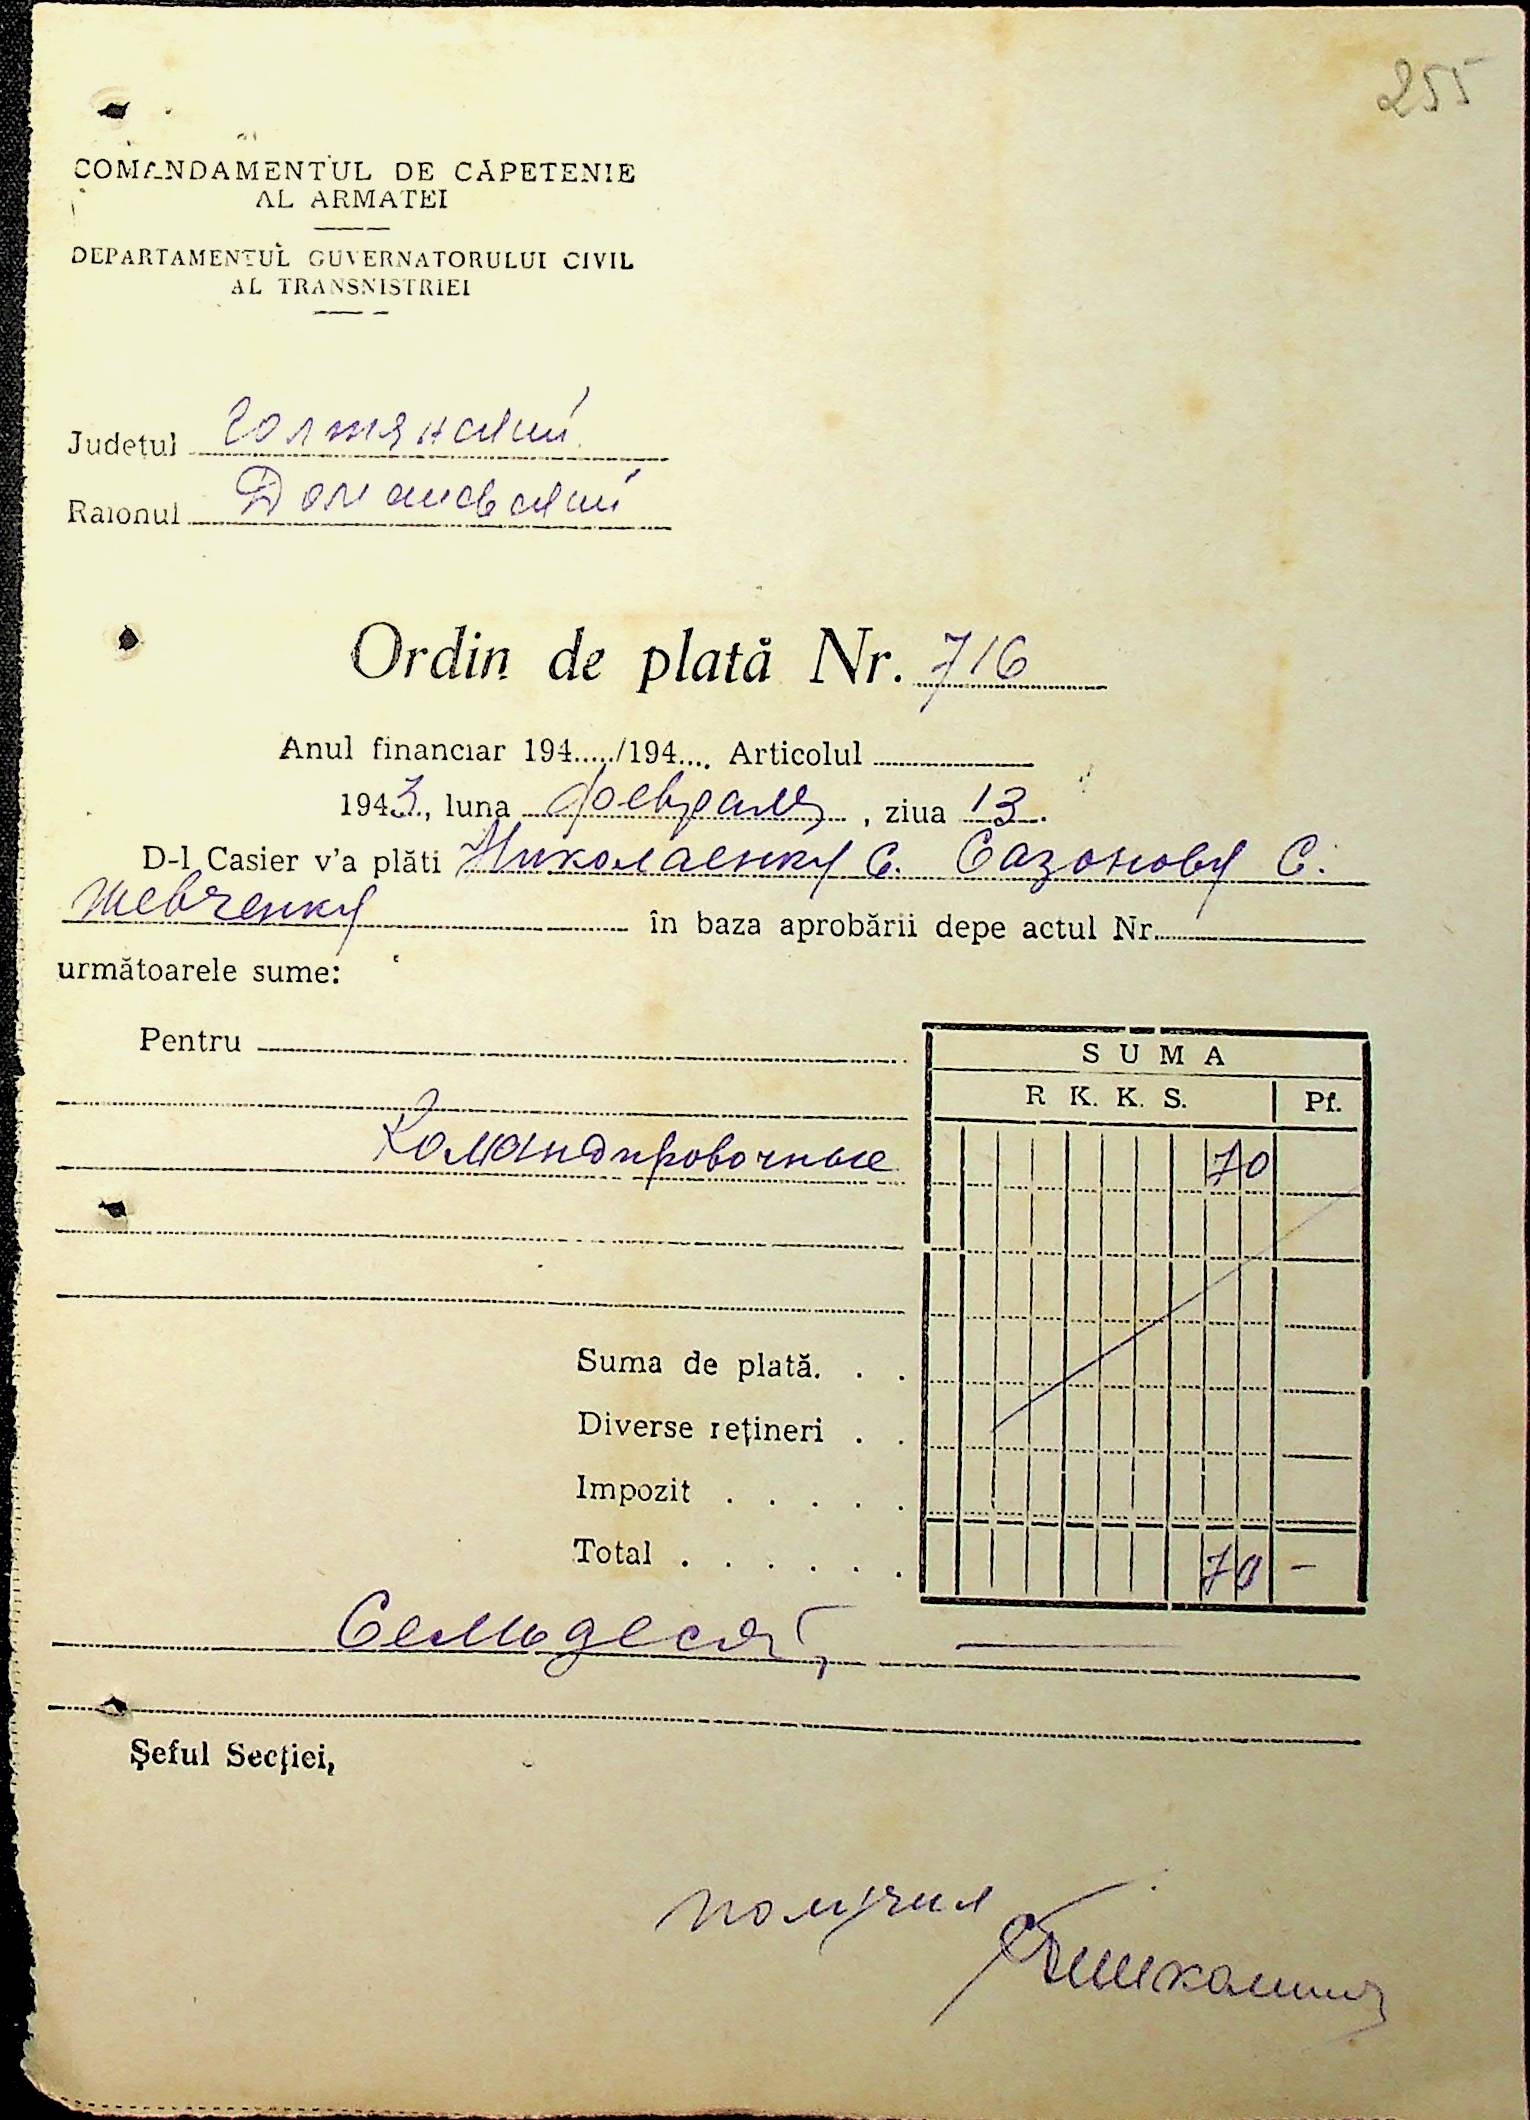 255
COMANDAMENTUL DE CĂPETENIE
AL ARMATEI
DEPARTAMENTUL GUVERNATORULUI CIVIL
AL TRANSNISTRIEI
Județul Голтянский
Raionul Домановский
Ordin de plată Nr. 716
Anul financiar 194...../194.... Articolul
1943, luna февраля, ziua 13.
D-l Casier v'a plăti Николаенку С. Сазонову С.
Шевченку în baza aprobării depe actul Nr.
următoarele sume:
Pentru
SUMA
R K. K. S. Pf.
Командировочные 70
Suma de plată. . .
Diverse rețineri . .
Impozit . . . . .
Total . . . . . . 70 -
Семьдесят,
Șeful Secției,
получил